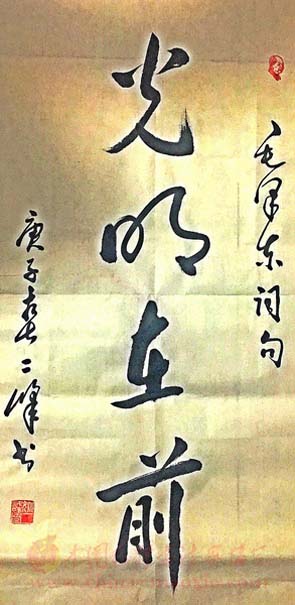 毛泽东词句
光明在前
庚子春二峰书